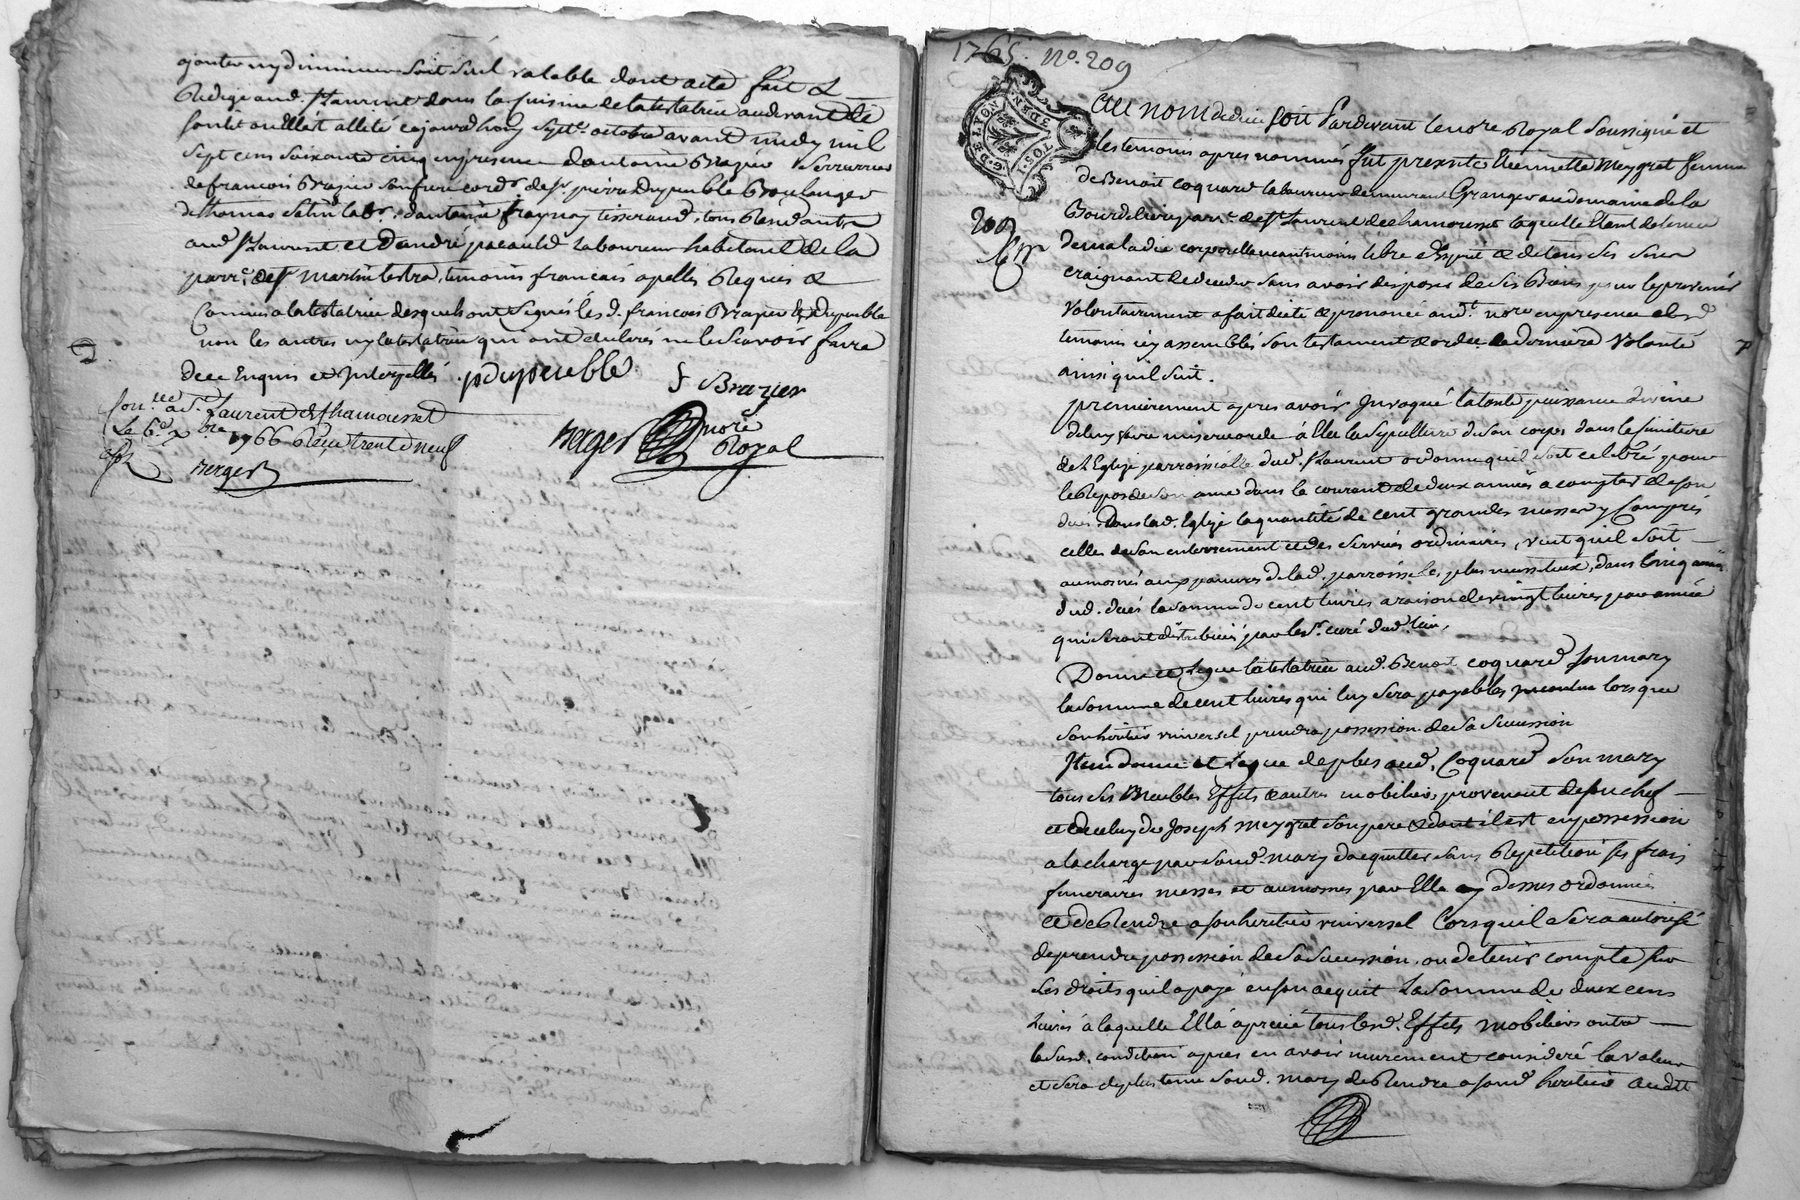 ajouter ny diminuer soit seul valable dont acte fait et
Redigé aud. St Laurent dans la cuisine de la testatrice au devant de
son lit ou Elle est allité cejourdhuy sept.e octobre avant midy mil
sept cens soixante cinq en presence d'antoine Brazier serrurier
de francois Brazier son frere cord.r de Sr. pierre Dupeuble Boulanger
de thomas lab.r, d'antoine fraynay tisserand, tous Residants
aud St Laurent et d'andré pacauld laboureur habitant de la
parr.e de St martin lestra, temoins francais apelles Requis &
Connus a la testatrice desquels ont signés les d. francois Brazier & Dupeuble
non les autres ny la testatrice qui ont declarés ne le scavoir faire
de ce Enquis et Interpellés
pdupeuble
f Brazier
Berger nore Royal
Con.llé a St. Laurent de Chamousset
Le 6.e x.bre 1766 Reçu trente neuf
Berger
1765. No. 209
G. DE LYON
3 DEN.
209
Au nom de dieu soit Pardevant le nore Royal soussigné et
les temoins apres nommés fut presente Etiennette Meygret femme
de Benoit Coquard laboureur demeurant Granger au domaine de la
Bourdeliere parr.e de St Laurent de chamousset laquelle Etant detenue
de maladie corporelle neantmoins libre d'Esprit & de tous ses sens
craignant de deceder sans avoir disposé de ses Biens pour le prevenir
Volontairement a fait dicté & prononcé aud.t nore en presence desd
temoins icy assemblés son testament & ordce. de derniere Volonté
ainsi quil suit.
premierement apres avoir Invoqué la toute puissance divine
de luy faire misericorde à Elû la sepulture de son corps dans le cimitiere
de l'Eglize parroissialle dud. St Laurent ordonne quil soit celebré pour
le Repos de son ame dans le courant de deux années a compter de son
deces dans lad. Eglize la quantité de cent grandes messes y Compris
celles de son enterrement et des services ordinaires, veut quil soit
aumosné aux pauvres de lad. parroisse les plus necessiteux, dans les cinq années
dud. deces la somme de cent livres a raison de vingt livres par année
qui seront distribuées par le Sr. curé dud. lieu,
Donne et Legue la testatrice aud. Benoit Coquard son mary
la somme de cent livres qui luy sera payable lorsque
son heritier universel prendra possession de sa succession
Item donne et Legue de plus aud. Coquard son mary
tous ses Meubles Effets & autres mobiliers, provenant de son chef
et de celuy de Joseph Meygret son pere & dont il est en possession
a la charge par sond. mary d'acquitter sans Repetition ses frais
funeraires messes et aumosnes par Elle cy dessus ordonnés
et de Rendre a son heritier universel Lorsquil sera autorisé
de prendre possession de sa succession, ou de tenir compte sur
les droits quil a payé en son acquit La somme de deux cens
livres à laquelle Elle à aprecié tous lesd. Effets mobiliers outre
la susd. condition apres en avoir murement consideré la valeur
et sera de plus tenu sond. mary de Rendre a sond heritier